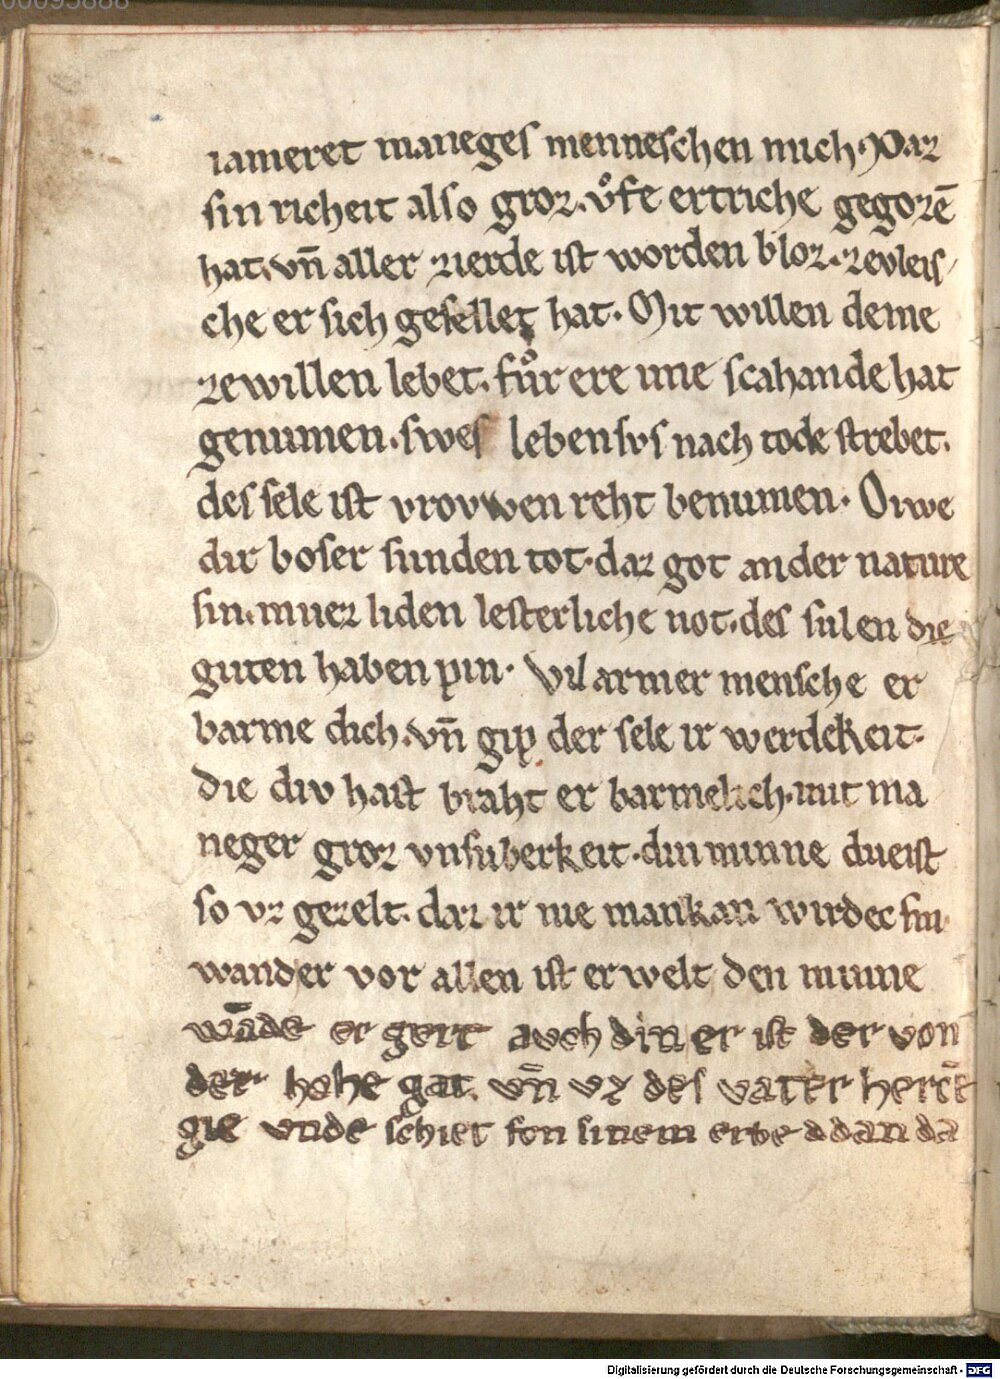 00095888
iameret maneges menneschen mich·Daz
sin richeit also groz·vͦfe ertriche gegozē
hat·vn̄ aller zierde ist worden bloz·zevleis/
che er sich gesellet hat· Mit willen deme
zewillen lebet·fuͦr ere ime scahande hat
genumen·swes lebens vs nach tode strebet·
des sele ist vrovwen reht benumen· Owe
dir boser sunden tot·daz got an der nature
sin·muez liden lesterliche not·des sulen die
guten haben pin· Vil armer mensche er
barme dich·vn̄ gip der sele ir werdekeit·
die div hast braht er barmelich·mit ma
neger groz vnsuberkeit·diu minne dueist
so vz gezelt·daz ir nie man kan wirdec sin·
wander vor allen ist erwelt den minne
wāde er gert avch din er ist der von
der hohe gat vn̄ vz des vater hercē
gie vnde schiet fon sinem erbe d dan da
Digitalisierung gefördert durch die Deutsche Forschungsgemeinschaft - DFG